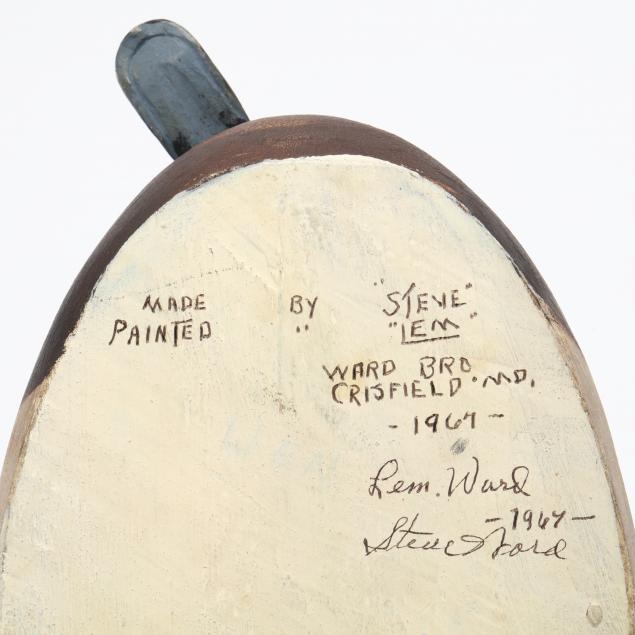 MADE BY "STEVE"
PAINTED " "LEM"
WARD BRO
CRISFIELD. MD.
- 1967 -
Lem. Ward
- 1967 -
Steve Ward